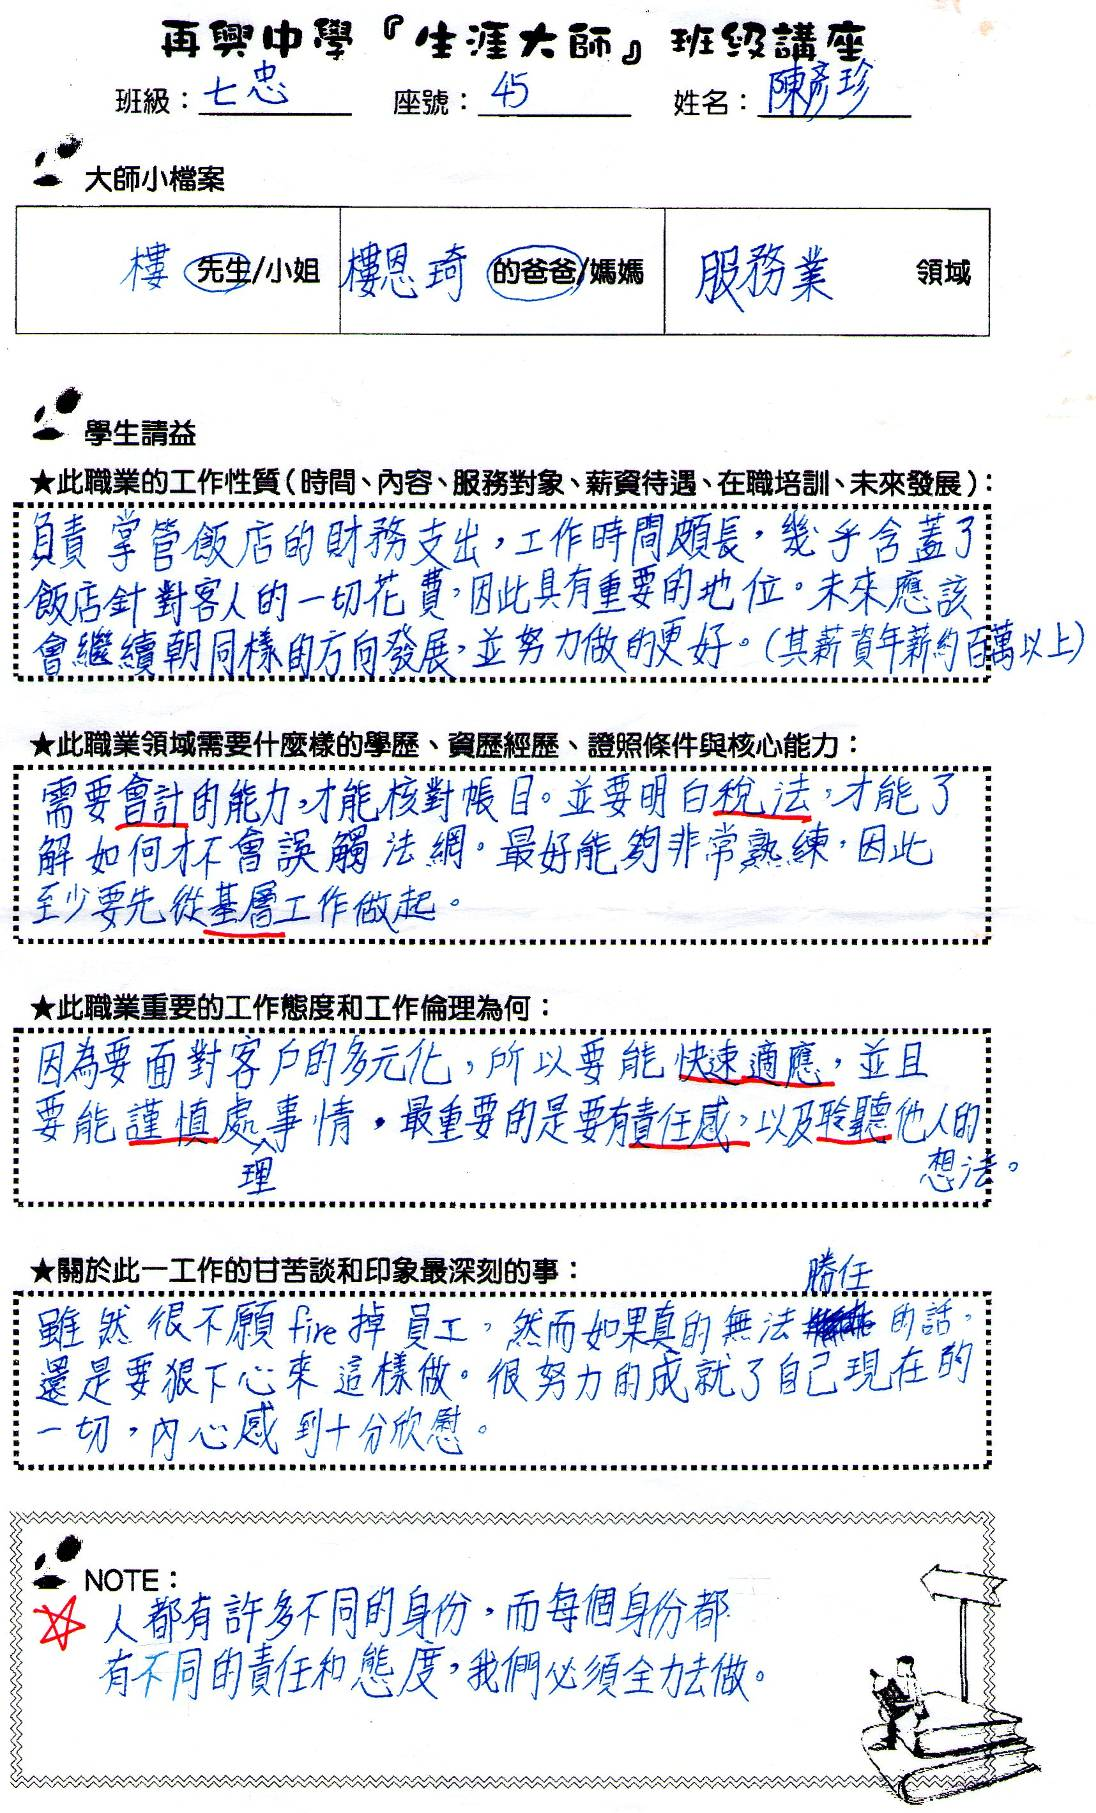 再興中學『生涯大師』班級講座
班級：七忠 座號：45 姓名：陳彥珍
大師小檔案
樓 先生/小姐 樓恩琦 的爸爸/媽媽 服務業 領域
學生請益
★此職業的工作性質（時間、內容、服務對象、薪資待遇、在職培訓、未來發展）：
負責掌管飯店的財務支出，工作時間頗長，幾乎含蓋了
飯店針對客人的一切花費，因此具有重要的地位。未來應該
會繼續朝同樣的方向發展，並努力做的更好。(其薪資年薪約百萬以上)
★此職業領域需要什麼樣的學歷、資歷經歷、證照條件與核心能力：
需要會計的能力，才能核對帳目。並要明白稅法，才能了
解如何才不會誤觸法網。最好能夠非常熟練，因此
至少要先從基層工作做起。
★此職業重要的工作態度和工作倫理為何：
因為要面對客戶的多元化，所以要能快速適應，並且
要能謹慎處理事情。最重要的是要有責任感，以及聆聽他人的
想法。
★關於此一工作的甘苦談和印象最深刻的事：
雖然很不願fire掉員工，然而如果真的無法勝任的話，
還是要狠下心來這樣做。很努力的成就了自己現在的
一切，內心感到十分欣慰。
NOTE：
人都有許多不同的身份，而每個身份都
有不同的責任和態度，我們必須全力去做。